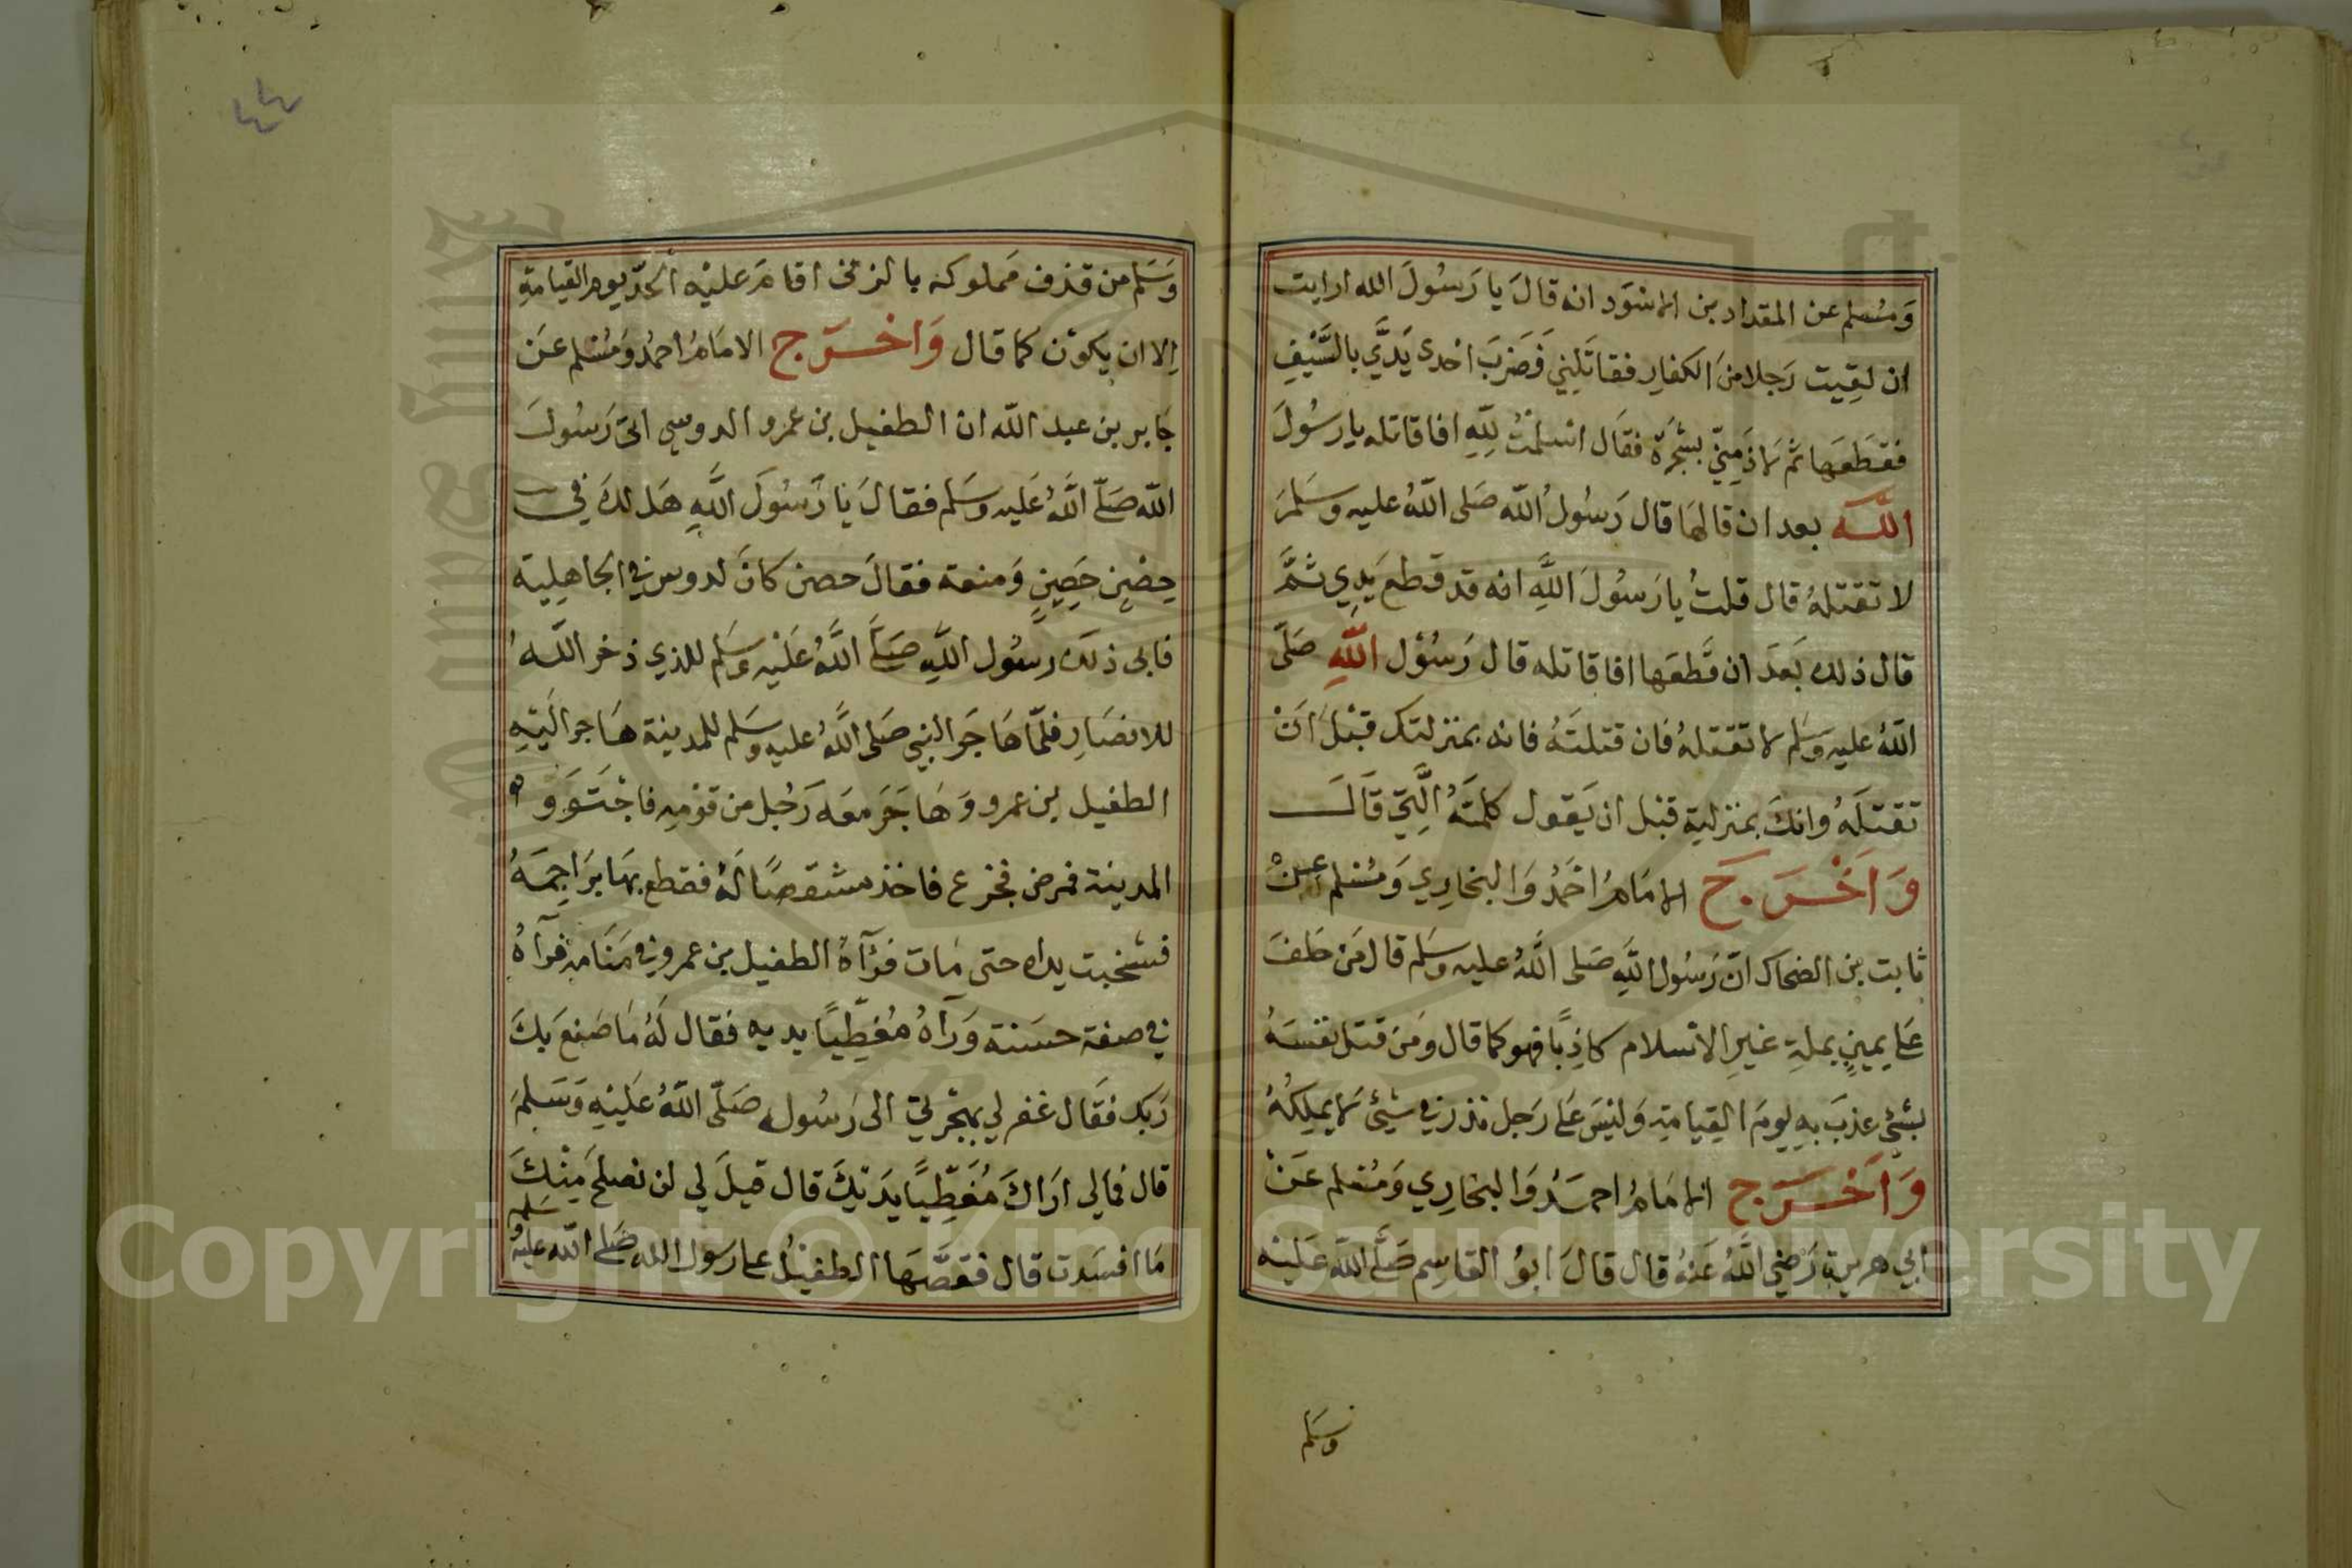 وَمُسْلم عن المقداد بن الاسْوَد انه قالَ يا رَسُولَ الله ارايت
ان لقِيت رَجلا منَ الكفارِ فقاتَلِني فَضَرَبَ احْدى يَدَيَّ بالسَّيْفِ
فقطَعَها ثم لاذَ مِنّي بشجَرَة فقال اسْلمْتُ لِلّهِ افاقاتله يا رسُولَ
اللّه بعد ان قالهَا قال رَسُولُ اللّه صَلى اللّهُ عليه وسَلمَ
لا تقتلهُ قال قلتُ يا رَسُولَ اللَّهِ انه قد قطع يَدِي ثمَّ
قال ذلك بَعدَ ان قَطعَها افاقاتله قال رَسُوْل اللَّهِ صَلّى
اللّهُ عليه وَسَلم لا تقتلهُ فان قتلتَهُ فانه بمنزلتك قبْلَ انْ
تقتلَهُ وانكَ بمنزلتِهِ قبْل ان يَقول كلمتَهُ الَّتِي قَالَ
وَاَخْرَجَ الامَامُ احْمَدُ وَالبخارِي وَمُسْلم عن
ثابت بن الضحاك انّ رَسُول اللَّهِ صَلى اللَّهُ عليه وسَلم قال مَن حَلفَ
عَلى يمينٍ بملةِ غيرِ الاسْلام كاذِبًا فهو كما قال وَمَن قتل نفسَهُ
بشئٍ عذبَ بهِ يومَ القِيامةِ وَليْسَ عَلى رَجل نذر في شيْئ لا يملِكُهُ
وَاَخْرَج الامَامُ احمَدُ وَالبخارِي وَمُسْلم عَنْ
ابي هريرة رَضي اللَّهُ عَنهُ قال قالَ ابوُ القاسِم صَلَّى اللّه عَليْه
وسَلم
٤٤
وَسَلم من قذف مَملوكه بالزنى اقامَ عليْه الحدّ يوم القيامةِ
اِلا ان يكوْن كما قال وَاخْرَج الامَامُ احمدُ وَمُسْلم عَن
جَابر بن عبد اللّه ان الطفيل بن عمرو الدوسي اتى رَسُولَ
اللّه صَلّى اللَّهُ عَليه وسَلم فقالَ يا رَسُولَ اللَّهِ هَل لكَ في
حِصْنٍ حَصِينٍ وَمنعة فقالَ حصن كانَ لدوس في الجاهِلِية
فابى ذلك رسُول اللَّهِ صَلَّى اللَّهُ عَليْه وسَلم للذي ذخر اللّهُ
للانصَارِ فلمّا هَاجَرَ النبي صَلى اللَّهُ عليه وسَلم للمدينة هَاجر اليْهِ
الطفيل بن عمرو وَهَاجَرَ معَه رَجُل من قوْمِهِ فاجْتَوَوْا
المدينة فمرض فجزع فاخذ مشقصًا لَهُ فقطع بهَا بَرَاجِمَهُ
فشخبت يداه حتى مَات فرَآهُ الطفيل بن عمرو في مَنَامِه فرآهُ
في صفة حسَنة وَرآهُ مُغطِّيًا يديه فقال لَهُ مَا صَنعَ بكَ
رَبك فقَال غفر لي بهجْرتي الى رَسُوله صَلّى اللّهُ عَليْهِ وَسَلمَ
قال فمالي ارَاكَ مُغَطِّيًا يَدَيْكَ قال قيلَ لي لن نصلحَ مِنْكَ
مَا افسَدت قال فقصَّهَا الطفيْلُ على رسول الله صَلى اللّه عليْهِ وسَلم